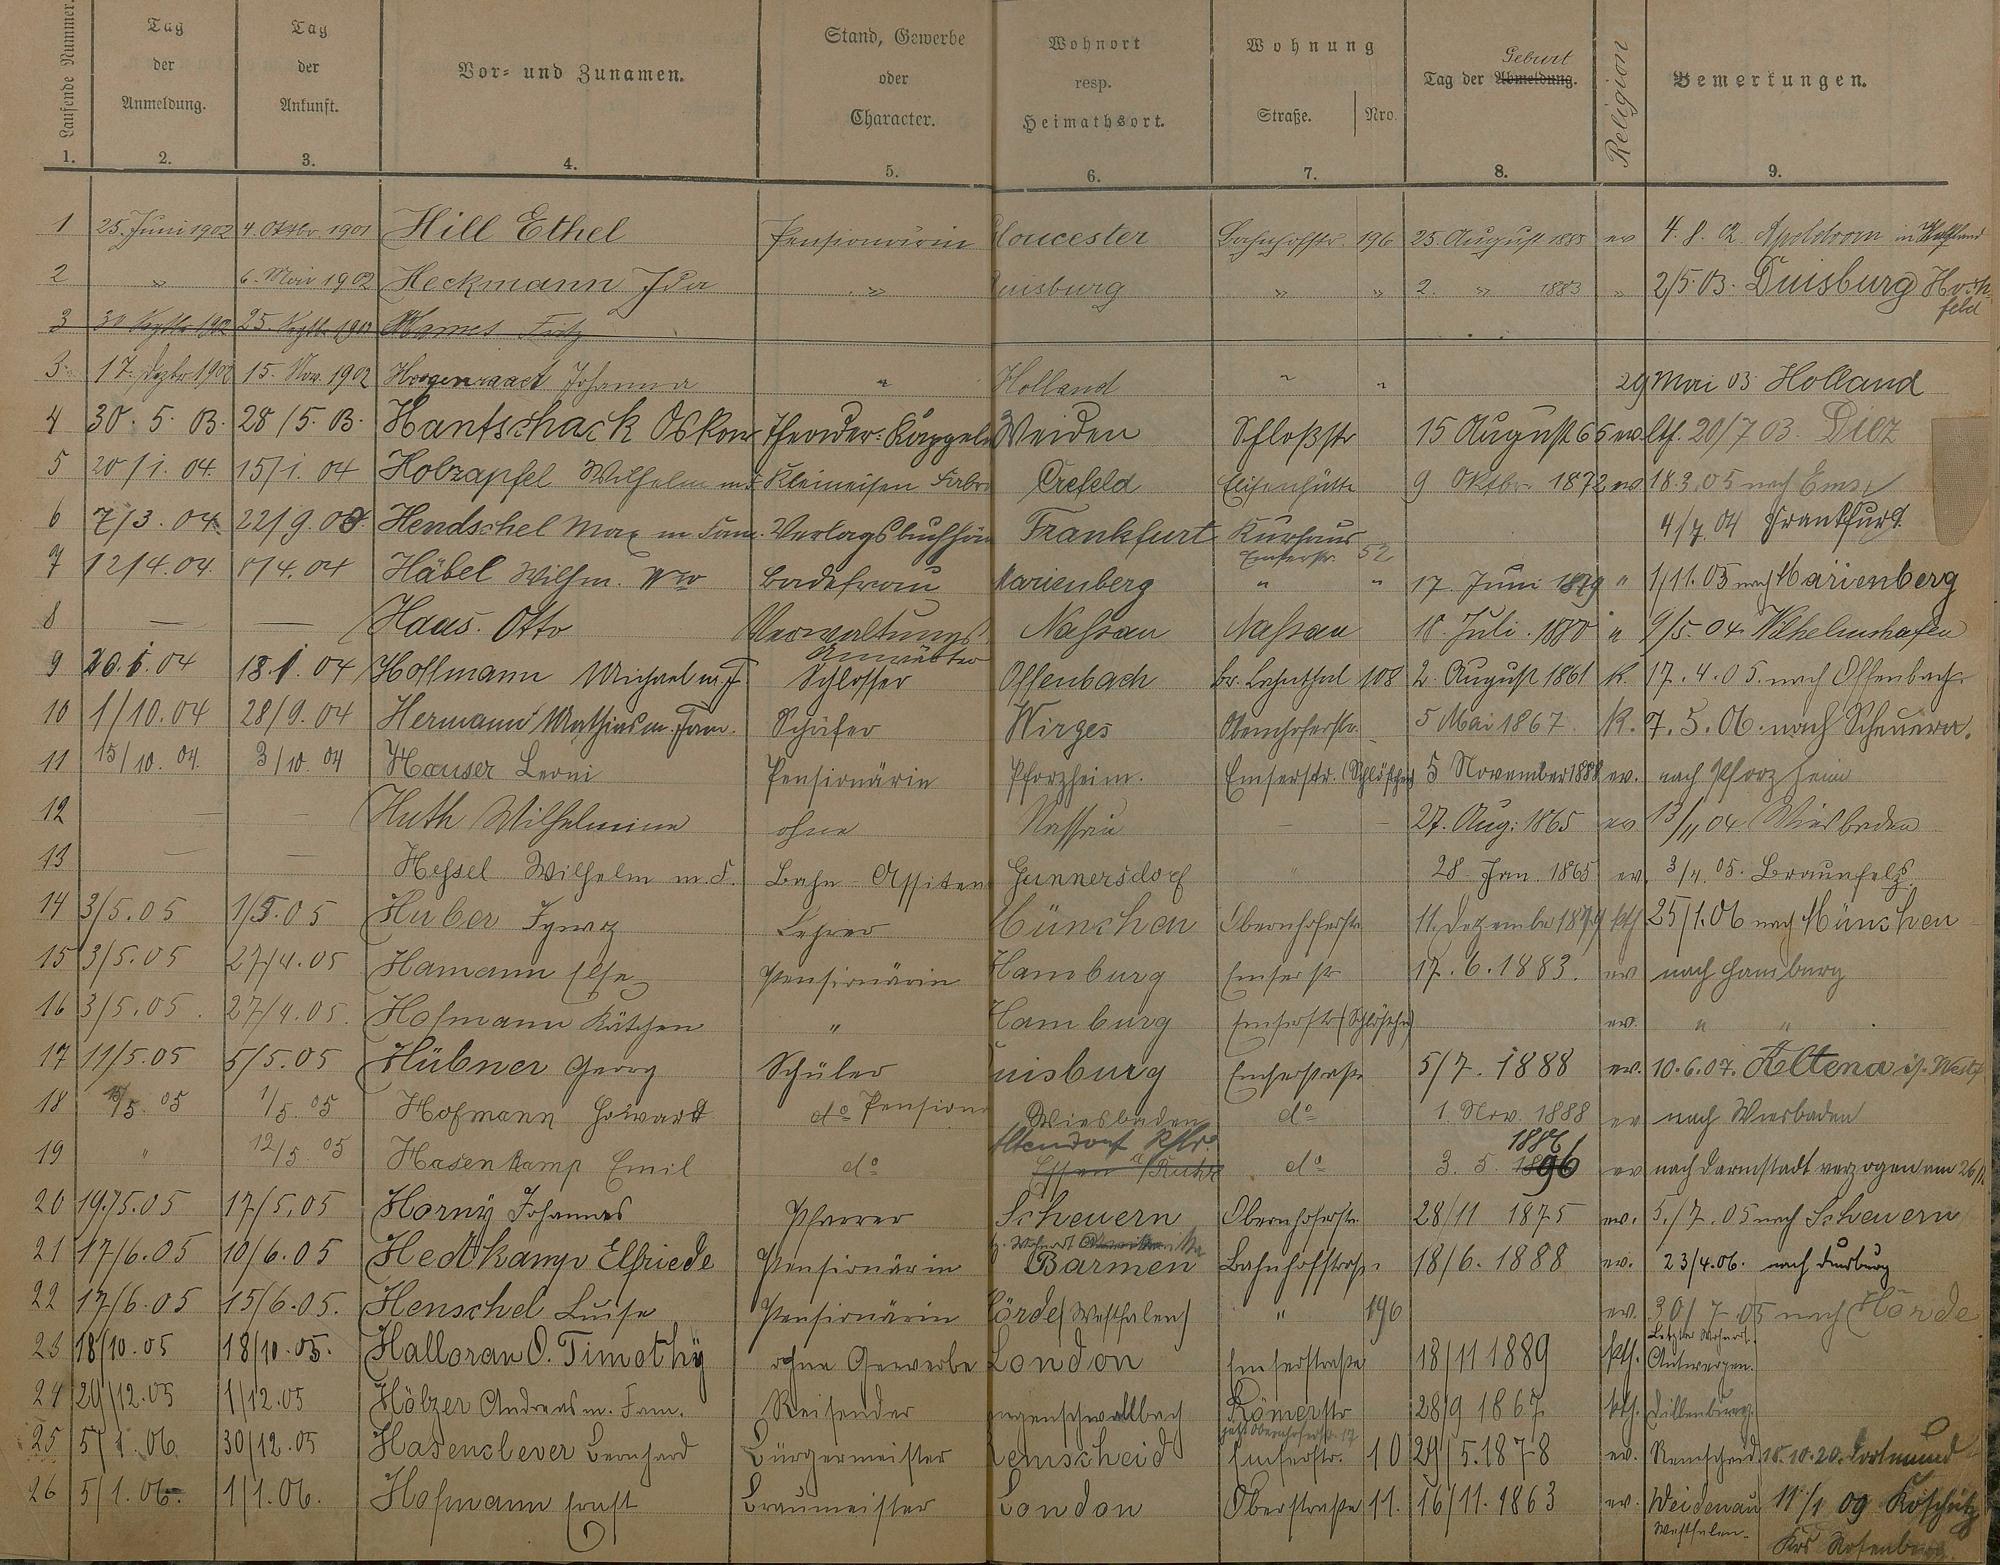 Laufende Nummer. Tag der Anmeldung. Tag der Ankunft. Vor- und Zunamen. Stand, Gewerbe oder Character. Wohnort resp. Heimathsort. Wohnung Straße. Nro. Tag der Abmeldung. Geburt Religion Bemerkungen.
1. 2. 3. 4. 5. 6. 7. 8. 9.
1 25. Juni 1902 4. Oktbr 1901 Hill Ethel Pensionärin Gloucester Bahnhofstr. 196 25. August 1885 ev 4. 8. 02 Apeldoorn in Holland
2 " 6. Mai 1902 Heckmann Ida " Duisburg " " 2. " 1883 " 2/5 03. Duisburg Hochfeld
3 Fritz
3. 17. Dezbr 15. Nov. 1902 Johanna " Holland " " 29 Mai 03 Holland
4 30. 5. 03. 28/5. 03. Hantschack Oskar Weiden Schloßstr 15 August 66 ev 20/7 03. Diez
5 20/1. 04. 15/1. 04 Holzapfel Wilhelm Kleineisen Crefeld Elisenhütte 9 Oktbr. 1872 ev 18.3.05 nach Ems
6 7/3. 04. Hendschel Max m Fam. Frankfurt Kurhaus 4/7. 04 Frankfurt
7 12/4.04. /4.04 Häbel Wilhm. Ww Badefrau Marienberg Emserstr. 52 " " 17. Juni 1879 " 1/11. 05 nach Marienberg
8 — — Haas. Otto Verwaltungs Anwärter Nassau Nassau 18. Juli. 1880 " 9/5. 04. Wilhelmshafen
9 20.1.04 18.1.04 Hoffmann Michael m. F Schlosser Offenbach Br. Lahnthal 108 2. August 1861 K. 17. 4. 05. nach Offenbach
10 1/10.04 28/9.04 Hermann Mathias m. Fam. Schäfer Wirges Obernhoferstr. 5 Mai 1867 K. 7. 5. 06. nach Scheuern.
11 15/10. 04. 3/10. 04 Hauser Leoni Pensionärin Pforzheim. Emserstr. (Schlößchen) 5 November 1888 ev. nach Pforzheim
12 — — Huth Wilhelmine ohne Nassau — — 27. Aug. 1865 ev 13/11 04 Wiesbaden
13 — — Hessel Wilhelm m. F. Bahn-Assisten Gunnersdorf " 28. Jan. 1865 ev. 3/4. 05. Braunfels.
14 3/5.05 1/5.05 Huber Lehrer München Obernhoferstr 11. Dezember 1879 kth 25/1.06 nach München
15 3/5.05 27/4.05 Hamann Else Pensionärin Hamburg Emserstr 17. 6. 1883. ev nach Hamburg
16 3/5.05. 27/4.05. Hofmann Kätchen " Hamburg Emserstr (Schlößchen) ev. " "
17 11/5.05 5/5.05 Hübner Georg Schüler Duisburg Emserstraße 5/7. 1888 ev. 10.6.07. Altena i. Westf
18 /5. 05 1/5. 05 Hofmann do Pension Wiesbaden do 1. Nov. 1888 ev nach Wiesbaden
19 " 12/5. 05 Hasenkamp Emil do Altendorf Essen a/Ruhr do 3. 5. 1896 1886 ev nach Darmstadt verzogen am 26/
20 19./5.05 17/5.05 Horny Johannes Pfarrer Scheuern Obernhoferstr. 28/11 1875 ev. 5./7. 05 nach Scheuern
21 17/6.05 10/6.05 Hedtkamp Elfriede Pensionärin Barmen Bahnhofstraße 18/6. 1888 ev. 23/4.06. nach Duisburg
22 17/6.05 15/6.05. Henschel Luise Pensionärin Hörde (Westfalen) " 196 ev. 30/7 05 nach Hörde.
23 18/10.05 18/10.05. Halloran O. Timothy ohne Gewerbe London Emserstraße 18/11 1889 kth. Letzter Wohnort. Antwerpen.
24 29/12.05 1/12.05 Hölzer Andreas m. Fam. Reisender Römerstr jetzt Obernhoferstr. 17 28/9 1867 kth. Dillenburg.
25 5/1.06 30/12.05 Hasenclever Bernhard Bürgermeister Remscheid Emserstr. 10 29/5.1878 ev. Remscheid 15.10.20. Dortmund
26 5/1.06. 1/1.06. Hofmann Ernst Braumeister London Oberstraße 11. 16/11. 1863 ev. Weidenau Westfalen. 11/1 09 Koschütz
Krs Rosenberg